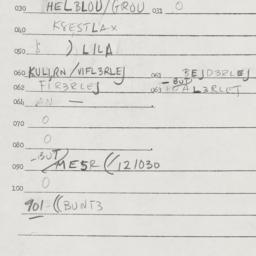 030 HELBLOU/GROU 031 O
040 KSESTLAX
050 ) LILA
060 KULJRN/VIFL3RLEJ 061 BEJD3RLEJ
062 FIR3RLEJ 063 -BUT AL3RLET
064 AN —
070 O
080 O
090 -BUT MESR (/121030
100 O
901 ((BUNT3